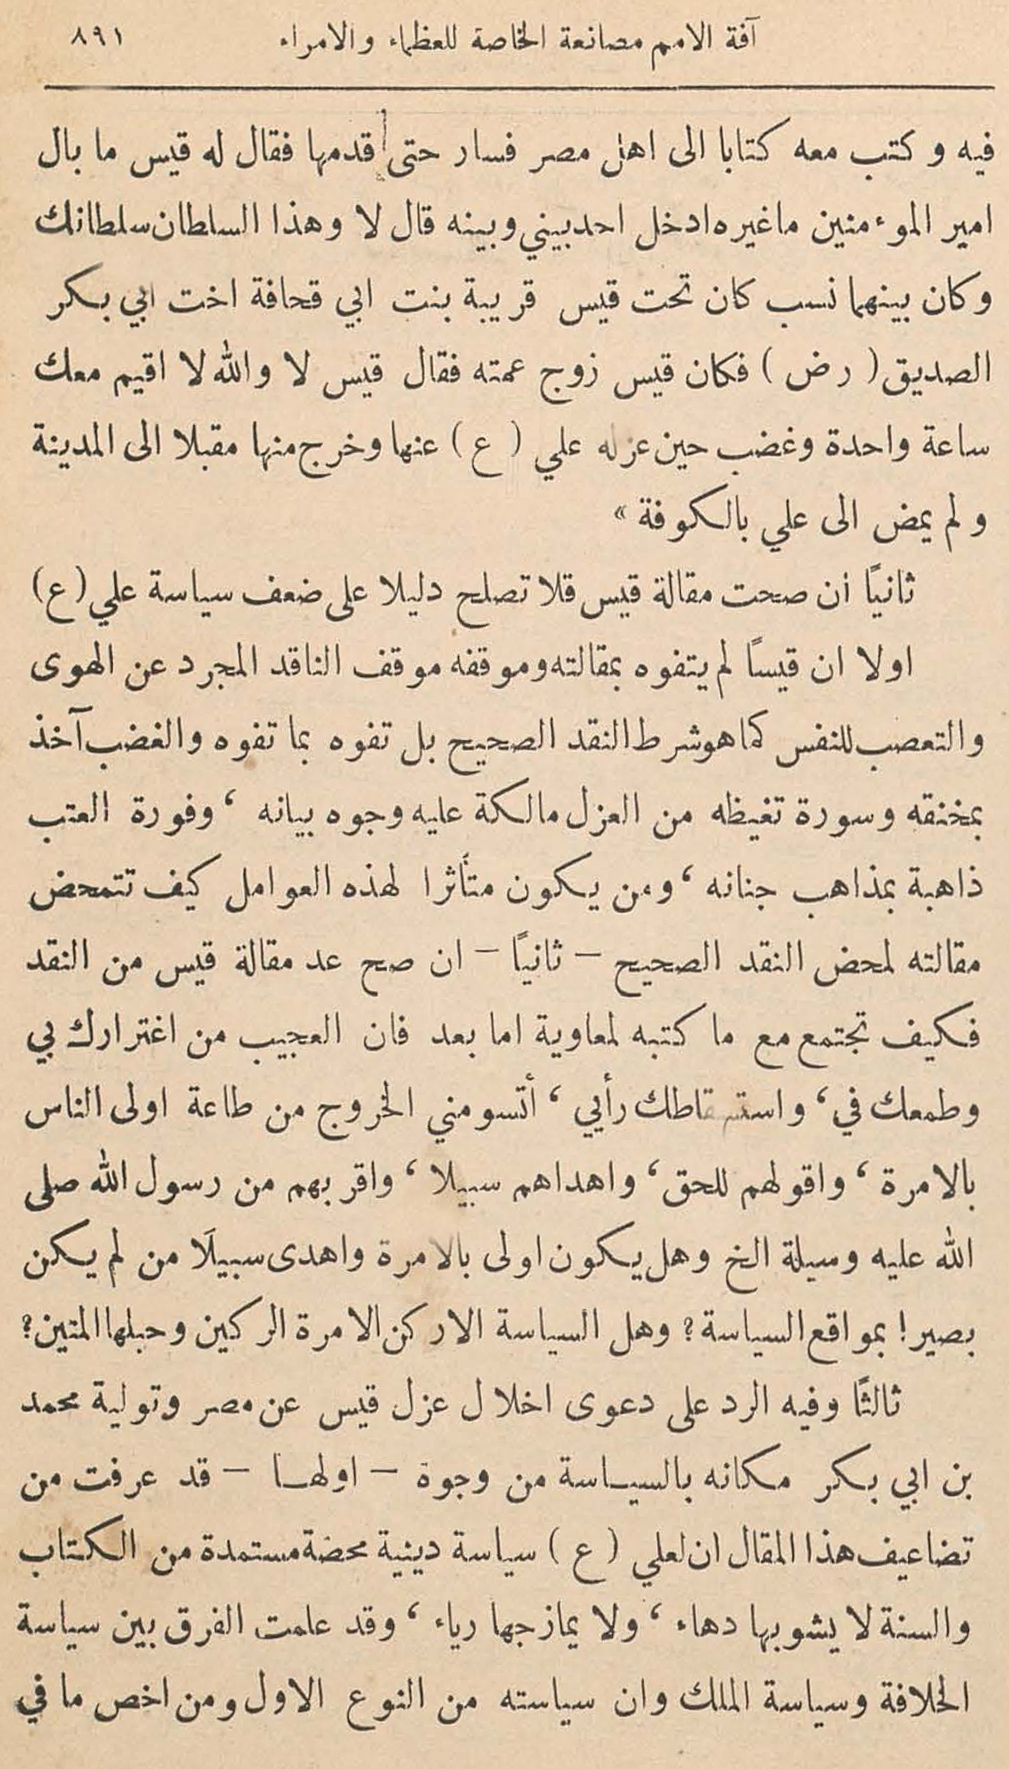 آفة الامم مصانعة الخاصة للعظماء والامراء ٨٩١
فيه وكتب معه كتابا الى اهل مصر فسار حتى قدمها فقال له قيس ما بال
امير الموءمنين ماغيره ادخل احد بيني وبينه قال لا وهذا السلطان سلطانك
وكان بينهما نسب كان تحت قيس قريبة بنت ابي قحافة اخت ابي بكر
الصديق ( رض ) فكان قيس زوج عمته فقال قيس لا والله لا اقيم معك
ساعة واحدة وغضب حين عزله علي ( ع ) عنها وخرج منها مقبلا الى المدينة
ولم يمض الى علي بالكوفة »
ثانيًا أن صحت مقالة قيس فلا تصلح دليلا على ضعف سياسة علي (ع)
اولا ان قيسًا لم يتفوه بمقالته وموقفه موقف الناقد المجرد عن الهوى
والتعصب للنفس كما هو شرط النقد الصحيح بل تفوه بما تفوه والغضب آخذ
بمخنقه وسورة تغيظه من العزل مالكة عليه وجوه بيانه ، وفورة العتب
ذاهبة بمذاهب جنانه ، ومن يكون متأثرا لهذه العوامل كيف تتمحض
مقالته لمحض النقد الصحيح – ثانيًا – ان صح عد مقالة قيس من النقد
فكيف تجتمع مع ما كتبه لمعاوية اما بعد فان العجيب من اغترارك بي
وطمعك في ، واستسقاطك رأيي ، أتسومني الخروج من طاعة اولى الناس
بالامرة ، واقولهم للحق ، واهداهم سبيلا ، واقربهم من رسول الله صلى
الله عليه وسيلة الخ وهل يكون اولى بالامرة واهدى سبيلًا من لم يكن
بصيرا بمواقع السياسة ؟ وهل السياسة الا ركن الامرة الركين وحبلها المتين ؟
ثالثًا وفيه الرد على دعوى اخلال عزل قيس عن مصر وتولية محمد
بن ابي بكر مكانه بالسياسة من وجوه – اولها – قد عرفت من
تضاعيف هذا المقال ان لعلي ( ع ) سياسة دينية محضة مستمدة من الكتاب
والسنة لا يشوبها دهاء ، ولا يمازجها رياء ، وقد علمت الفرق بين سياسة
الخلافة وسياسة الملك وان سياسته من النوع الاول ومن اخص ما في